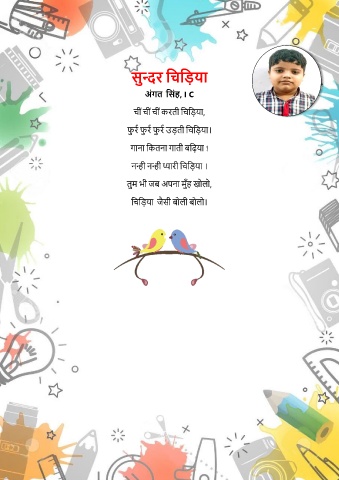 सुन्दर चिड़िया
अंगत सिंह, I C
चीं चीं चीं करती चिड़िया,
फुर्र फुर्र फुर्र उड़ती चिड़िया।
गाना कितना गाती बढ़िया !
नन्ही नन्ही प्यारी चिड़िया ।
तुम भी जब अपना मुँह खोलो,
चिड़िया जैसी बोली बोलो।